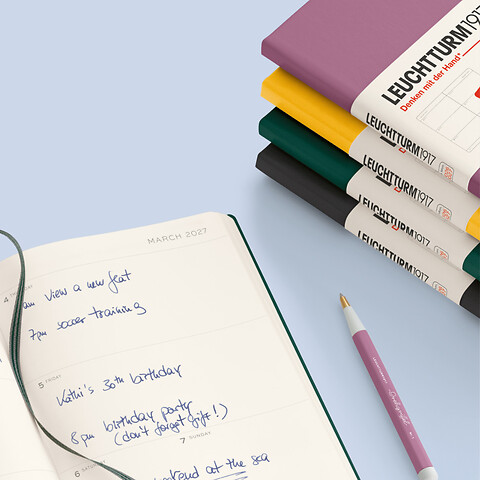 LEUCHTTURM1917
Denken mit der Hand*
LEUCHTTURM1917
LEUCHTTURM1917
LEUCHTTURM1917
LEUCHTTURM1917
MARCH 2027
4
am view a new flat
7pm soccer training
5 FRIDAY
Kathi's 30th birthday
8pm birthday party
(don't forget gift!)
7 SUNDAY
6 SATURDAY
at the sea